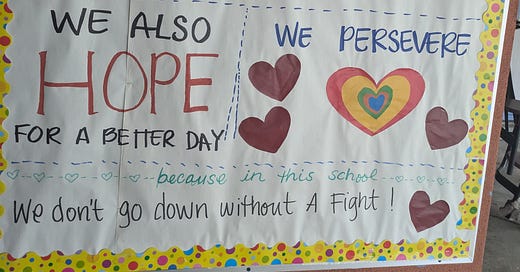 WE ALSO
HOPE
FOR A BETTER DAY
WE PERSEVERE
because in this school
We don't go down without A Fight!